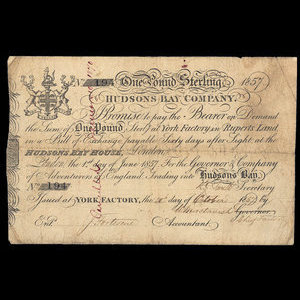 No 194 One Pound Sterling 1657
HUDSONS BAY COMPANY.
Promise to pay the Bearer on Demand
the Sum of One Pound Sterl. at York Factory in Ruperts Land
in a Bill of Exchange payable Sixty days after Sight at the
HUDSONS BAY HOUSE, London
London the 1st day of June 1857. For the Governor & Company
of Adventurers of England Trading into Hudsons Bay.
No 194 Secretary
Issued at YORK FACTORY, the day October
Governor
Ent. Accountant.